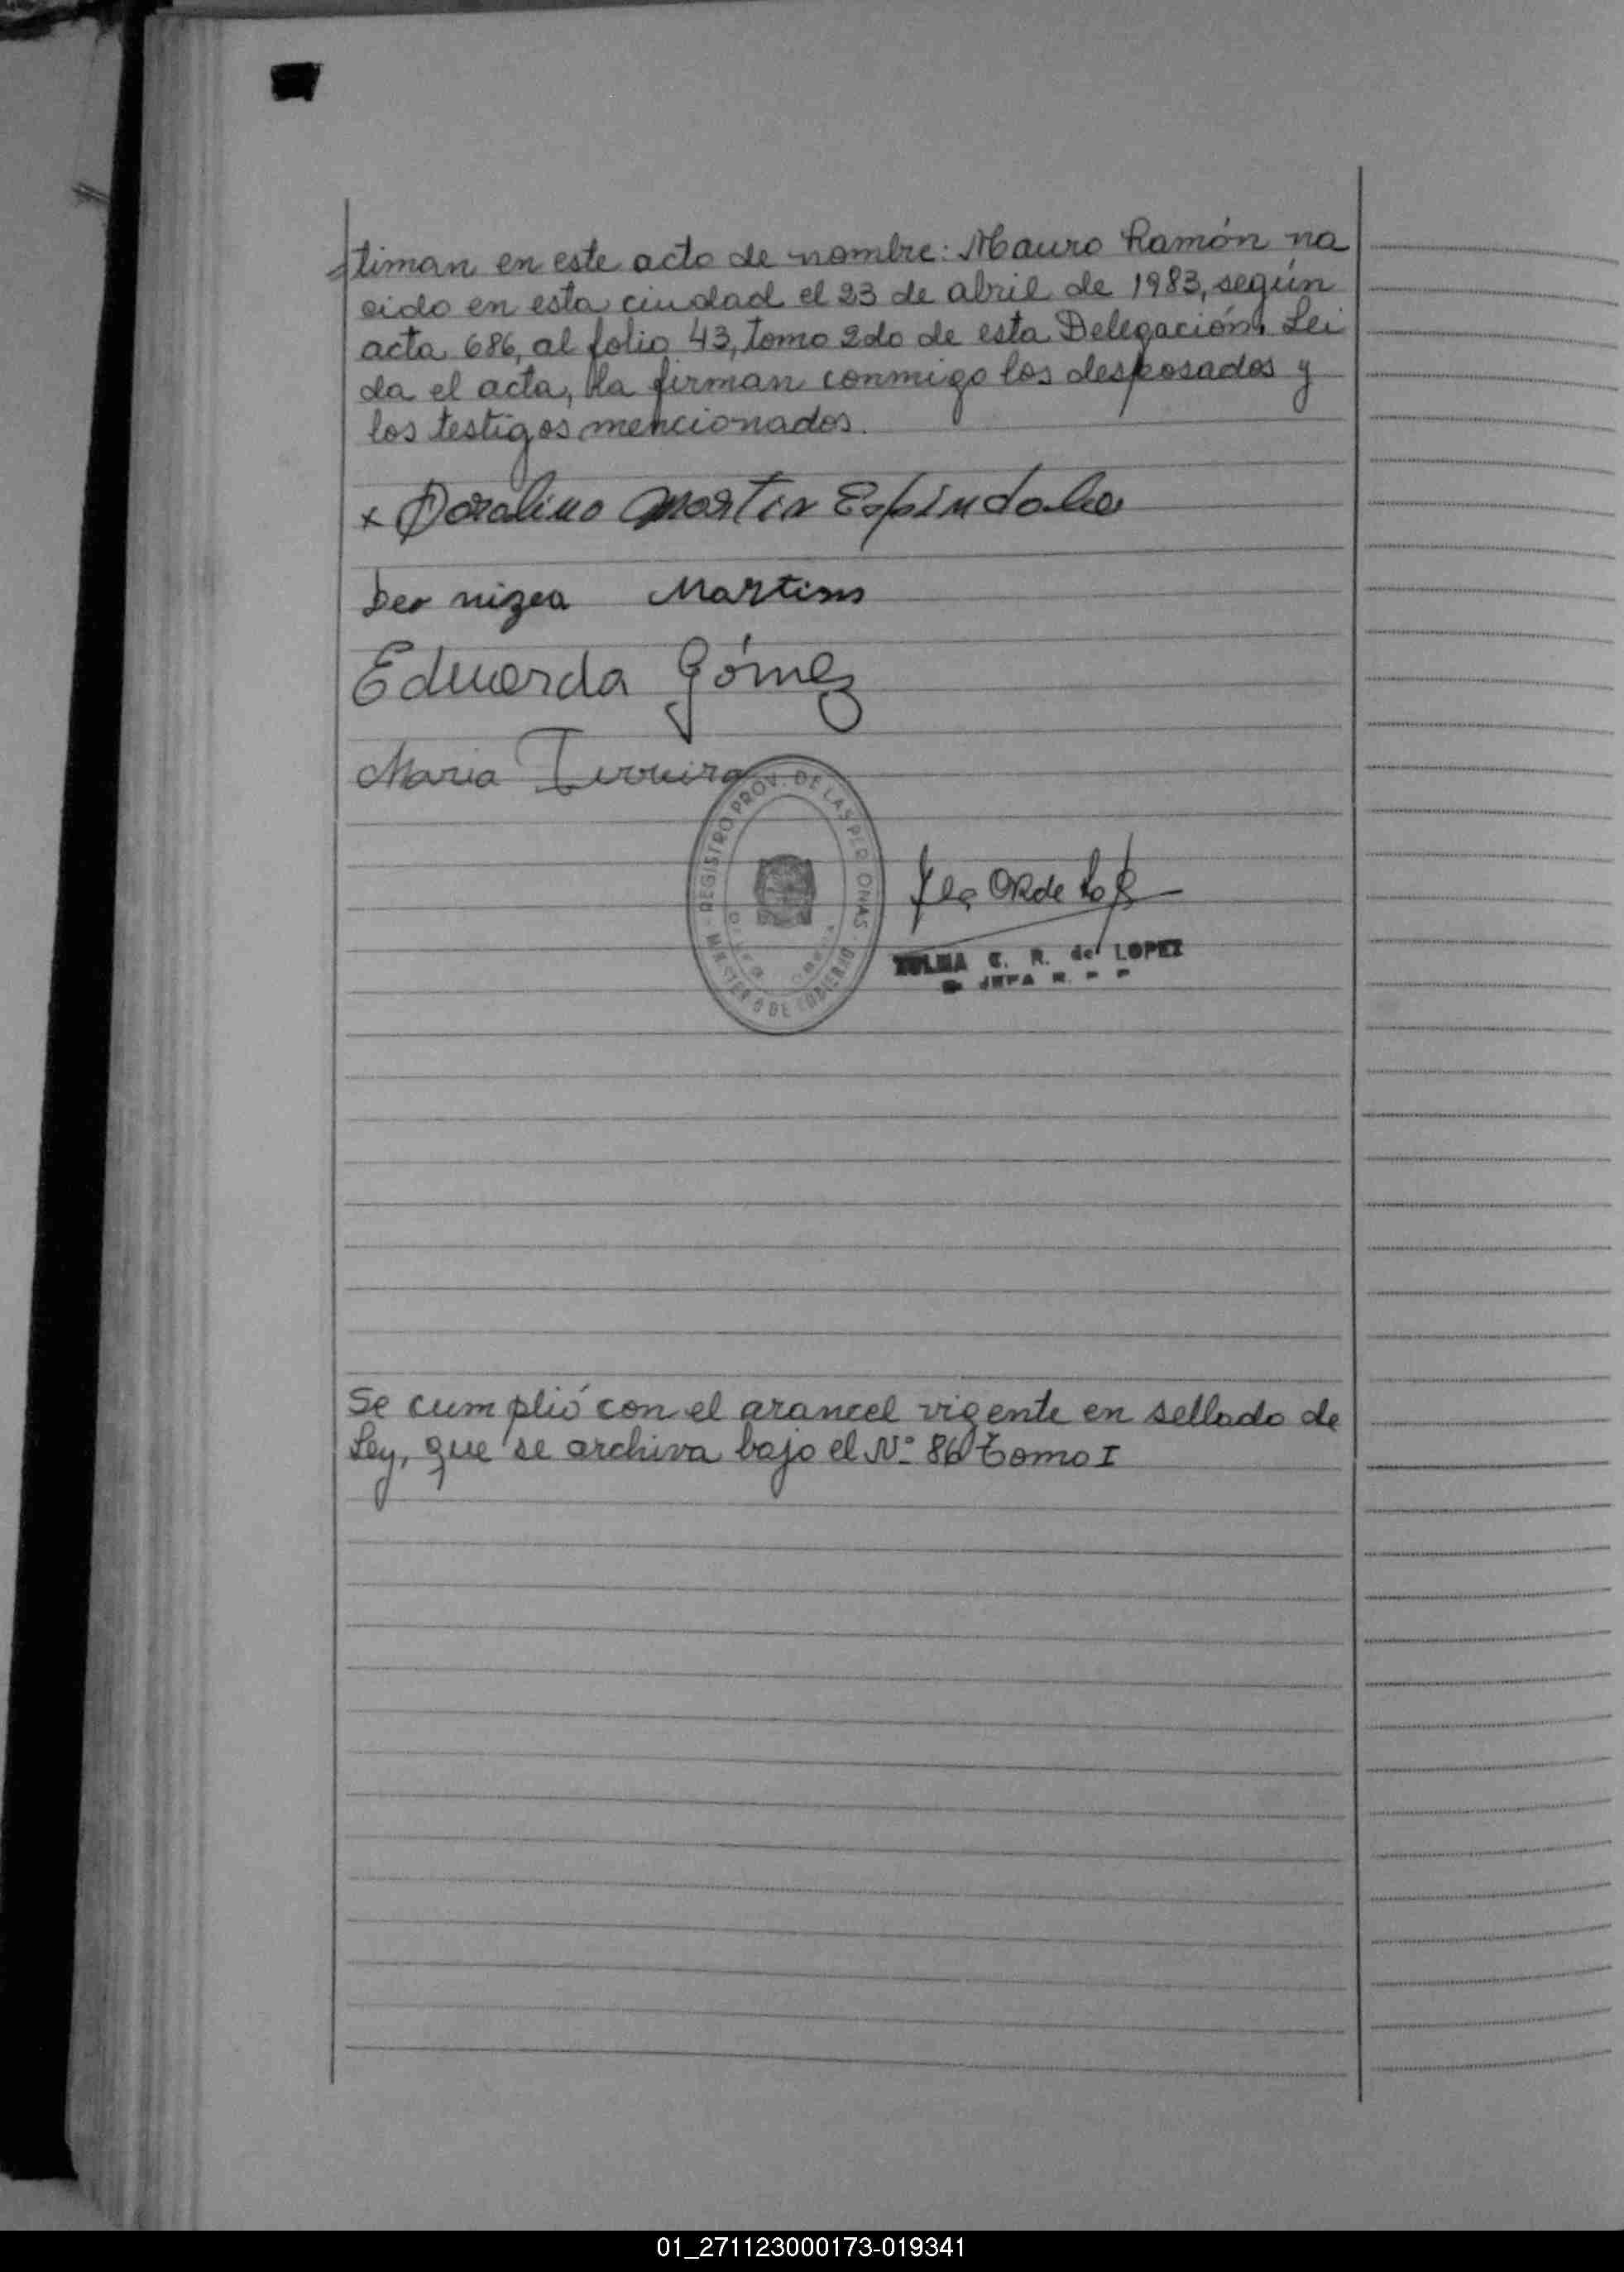 timan en este acto de nombre: Mauro Ramón na
cido en esta ciudad el 23 de abril de 1983, según
acta 686, al folio 43, tomo 2do de esta Delegación. Lei
da el acta, la firman conmigo los desposados y
los testigos mencionados.
x Doralino Martin Espindola
Martins
Eduarda Gómez
Maria Ferreira
REGISTRO PROV. DE LAS PERSONAS
MINISTERIO DE GOBIERNO
ZULMA C. R. de LOPEZ
JEFA R.
Se cumplió con el arancel vigente en sellado de
Ley, que se archiva bajo el Nº 86 Tomo I
01_271123000173-019341